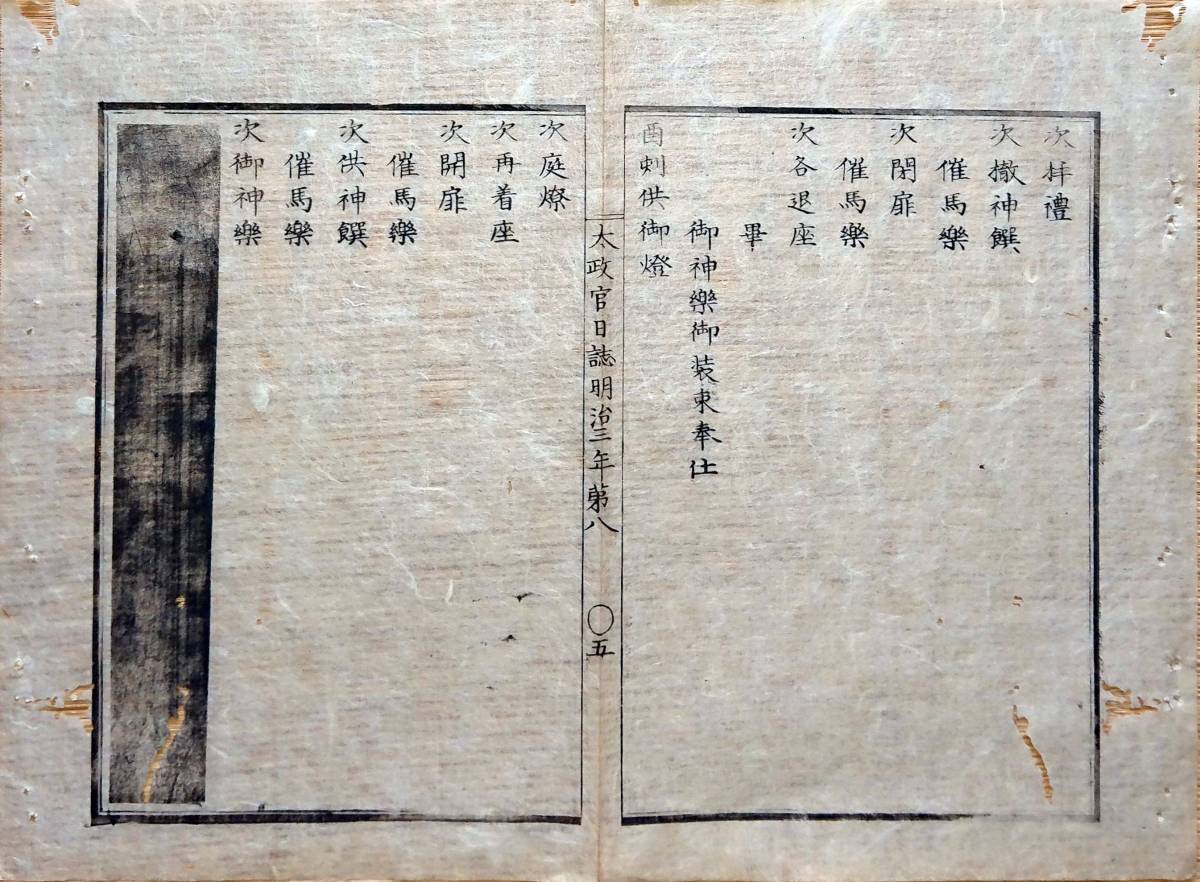 次拝禮
次撤神饌
催馬樂
次閉扉
催馬樂
次各退座
畢
御神樂御装束奉仕
酉刺供御燈
太政官日誌明治三年第八 〇五
次庭燎
次再着座
次開扉
催馬樂
次供神饌
催馬樂
次御神樂